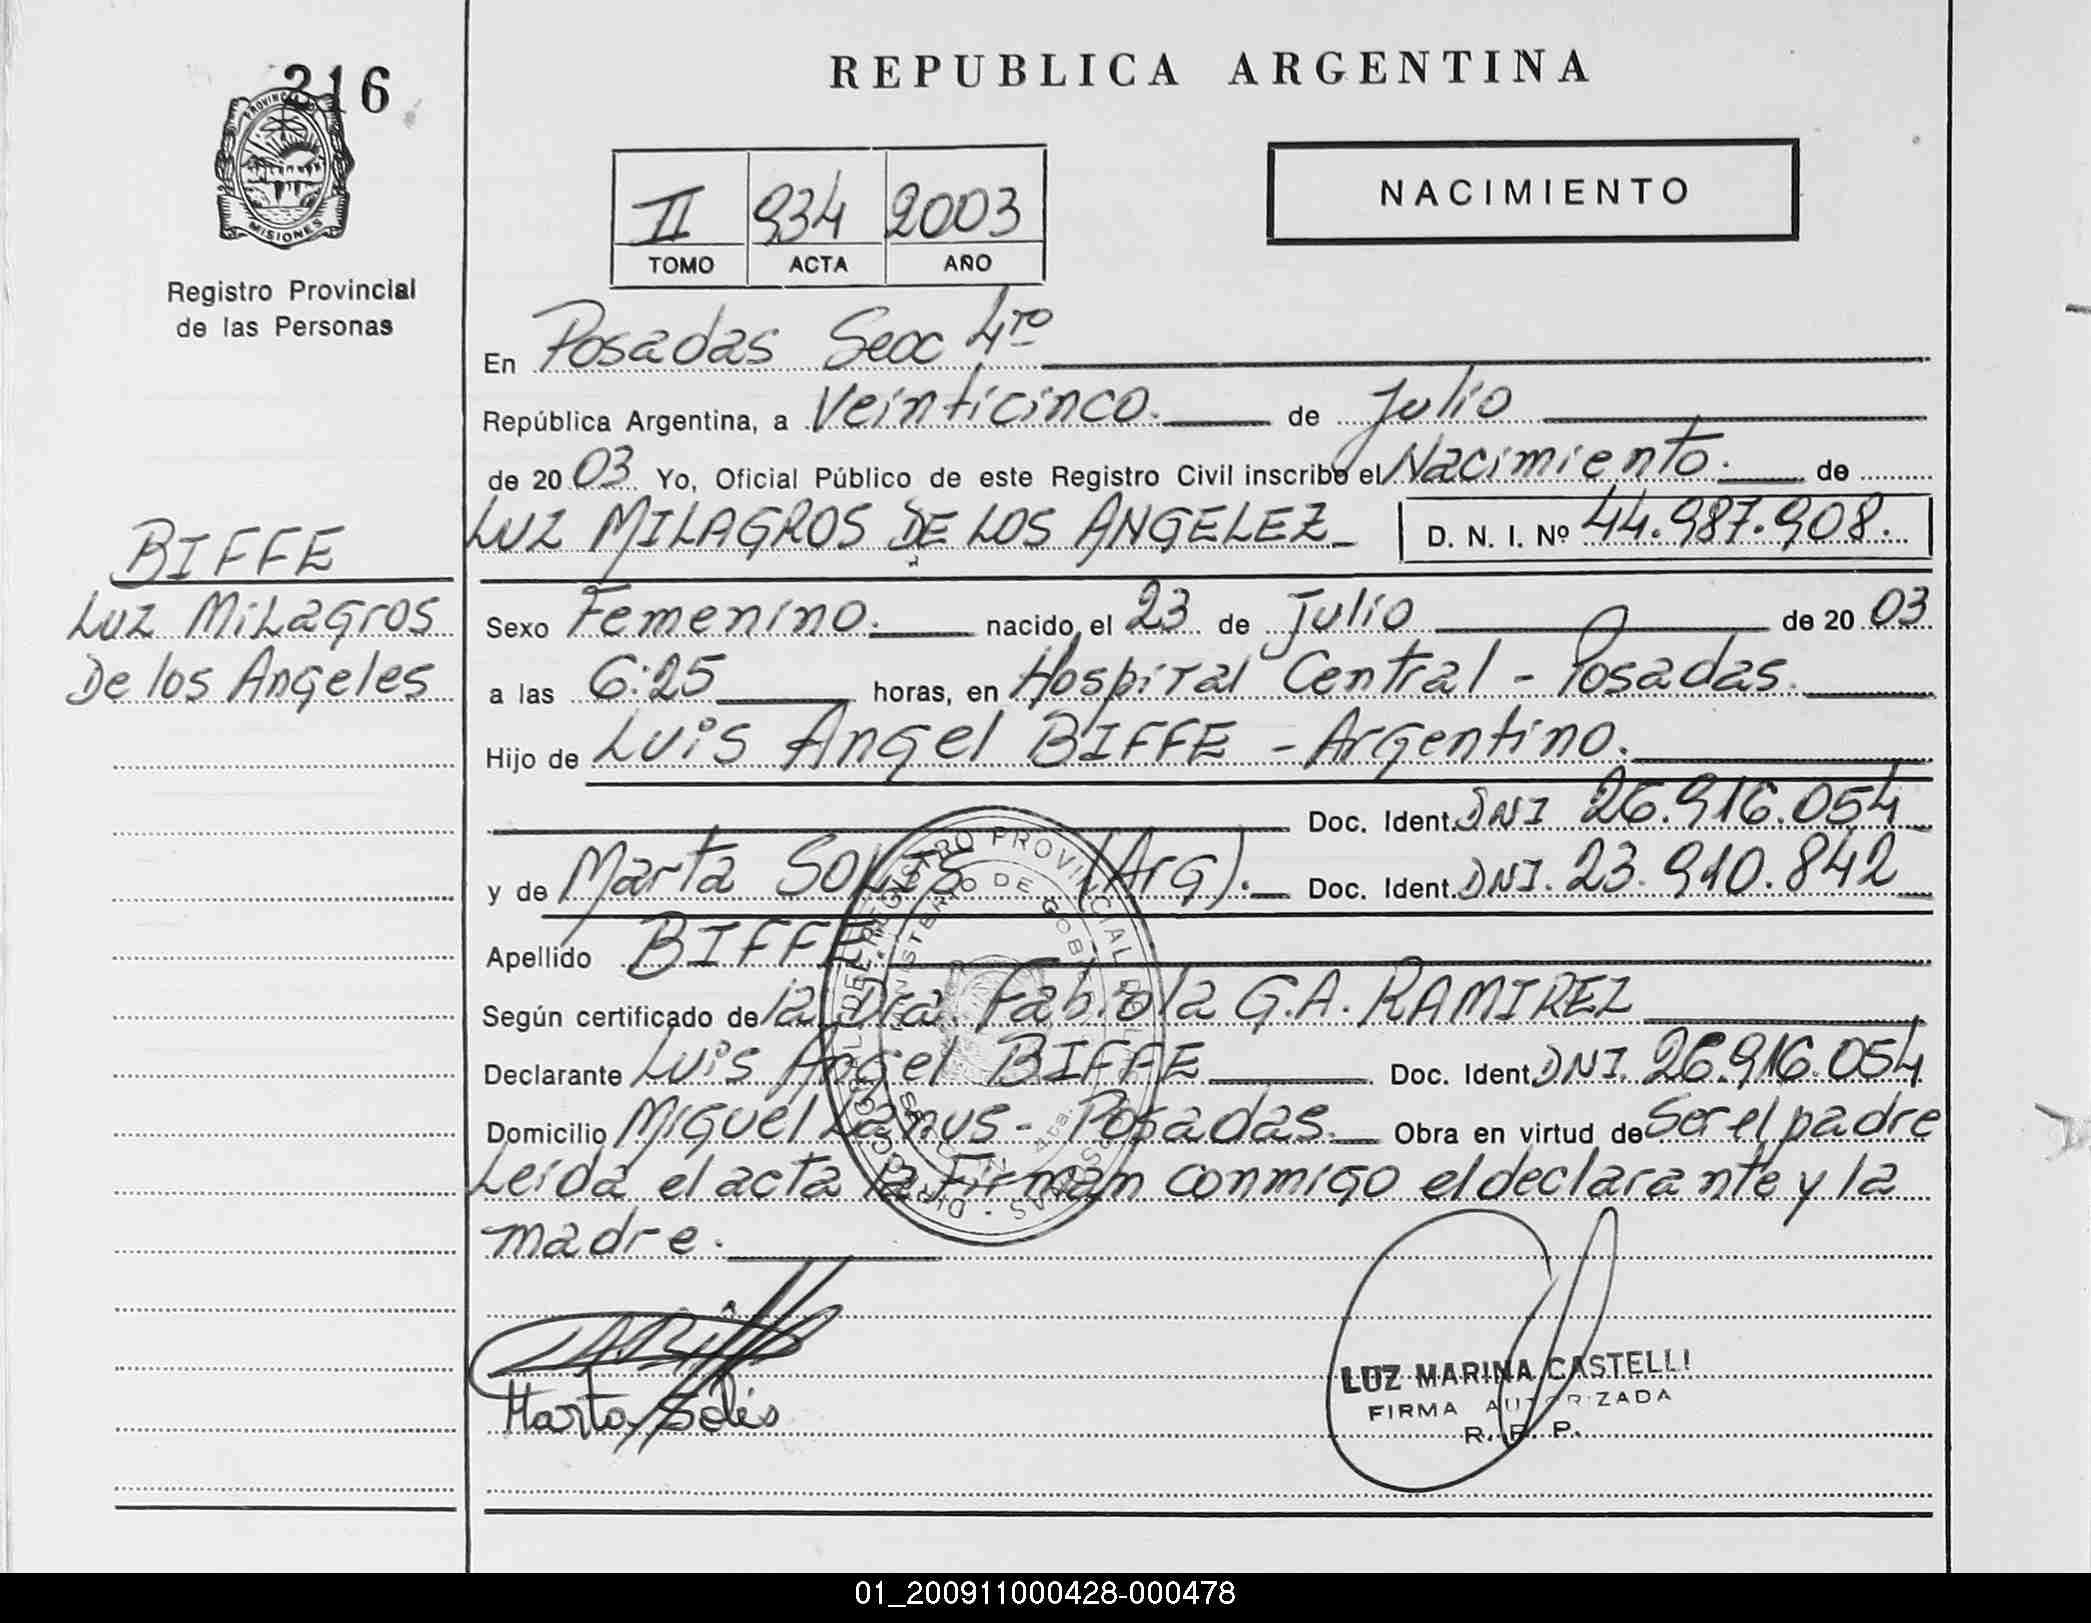 216
REPUBLICA ARGENTINA
PROVINCIA
MISIONES
Registro Provincial
de las Personas
II 934 2003
TOMO ACTA AÑO
NACIMIENTO
En Posadas Secc 4to
República Argentina, a Veinticinco. de Julio
de 2003 Yo, Oficial Público de este Registro Civil inscribo el Nacimiento. de
LUZ MILAGROS DE LOS ANGELEZ D. N. I. Nº 44.987.908.
BIFFE
Luz Milagros
De los Angeles
Sexo Femenino. nacido el 23 de Julio de 2003
a las 6:25 horas, en Hospital Central - Posadas.
Hijo de Luis Angel BIFFE - Argentino.
Doc. Ident. DNI 26.916.054
y de Marta SOLIS (Arg). Doc. Ident. DNI. 23.910.842
Apellido BIFFE
Según certificado de la Dra. Fabiola G.A. RAMIREZ
Declarante Luis Angel BIFFE Doc. Ident. DNI. 26.916.054
Domicilio Miguel Lanus - Posadas. Obra en virtud de Ser el padre
Leida el acta la Firman conmigo el declarante y la
madre.
REGISTRO PROVINCIAL DE LAS
MINISTERIO DE GOB
Marta Solis
LUZ MARINA CASTELLI
FIRMA AUTORIZADA
R. P. P.
01_200911000428-000478